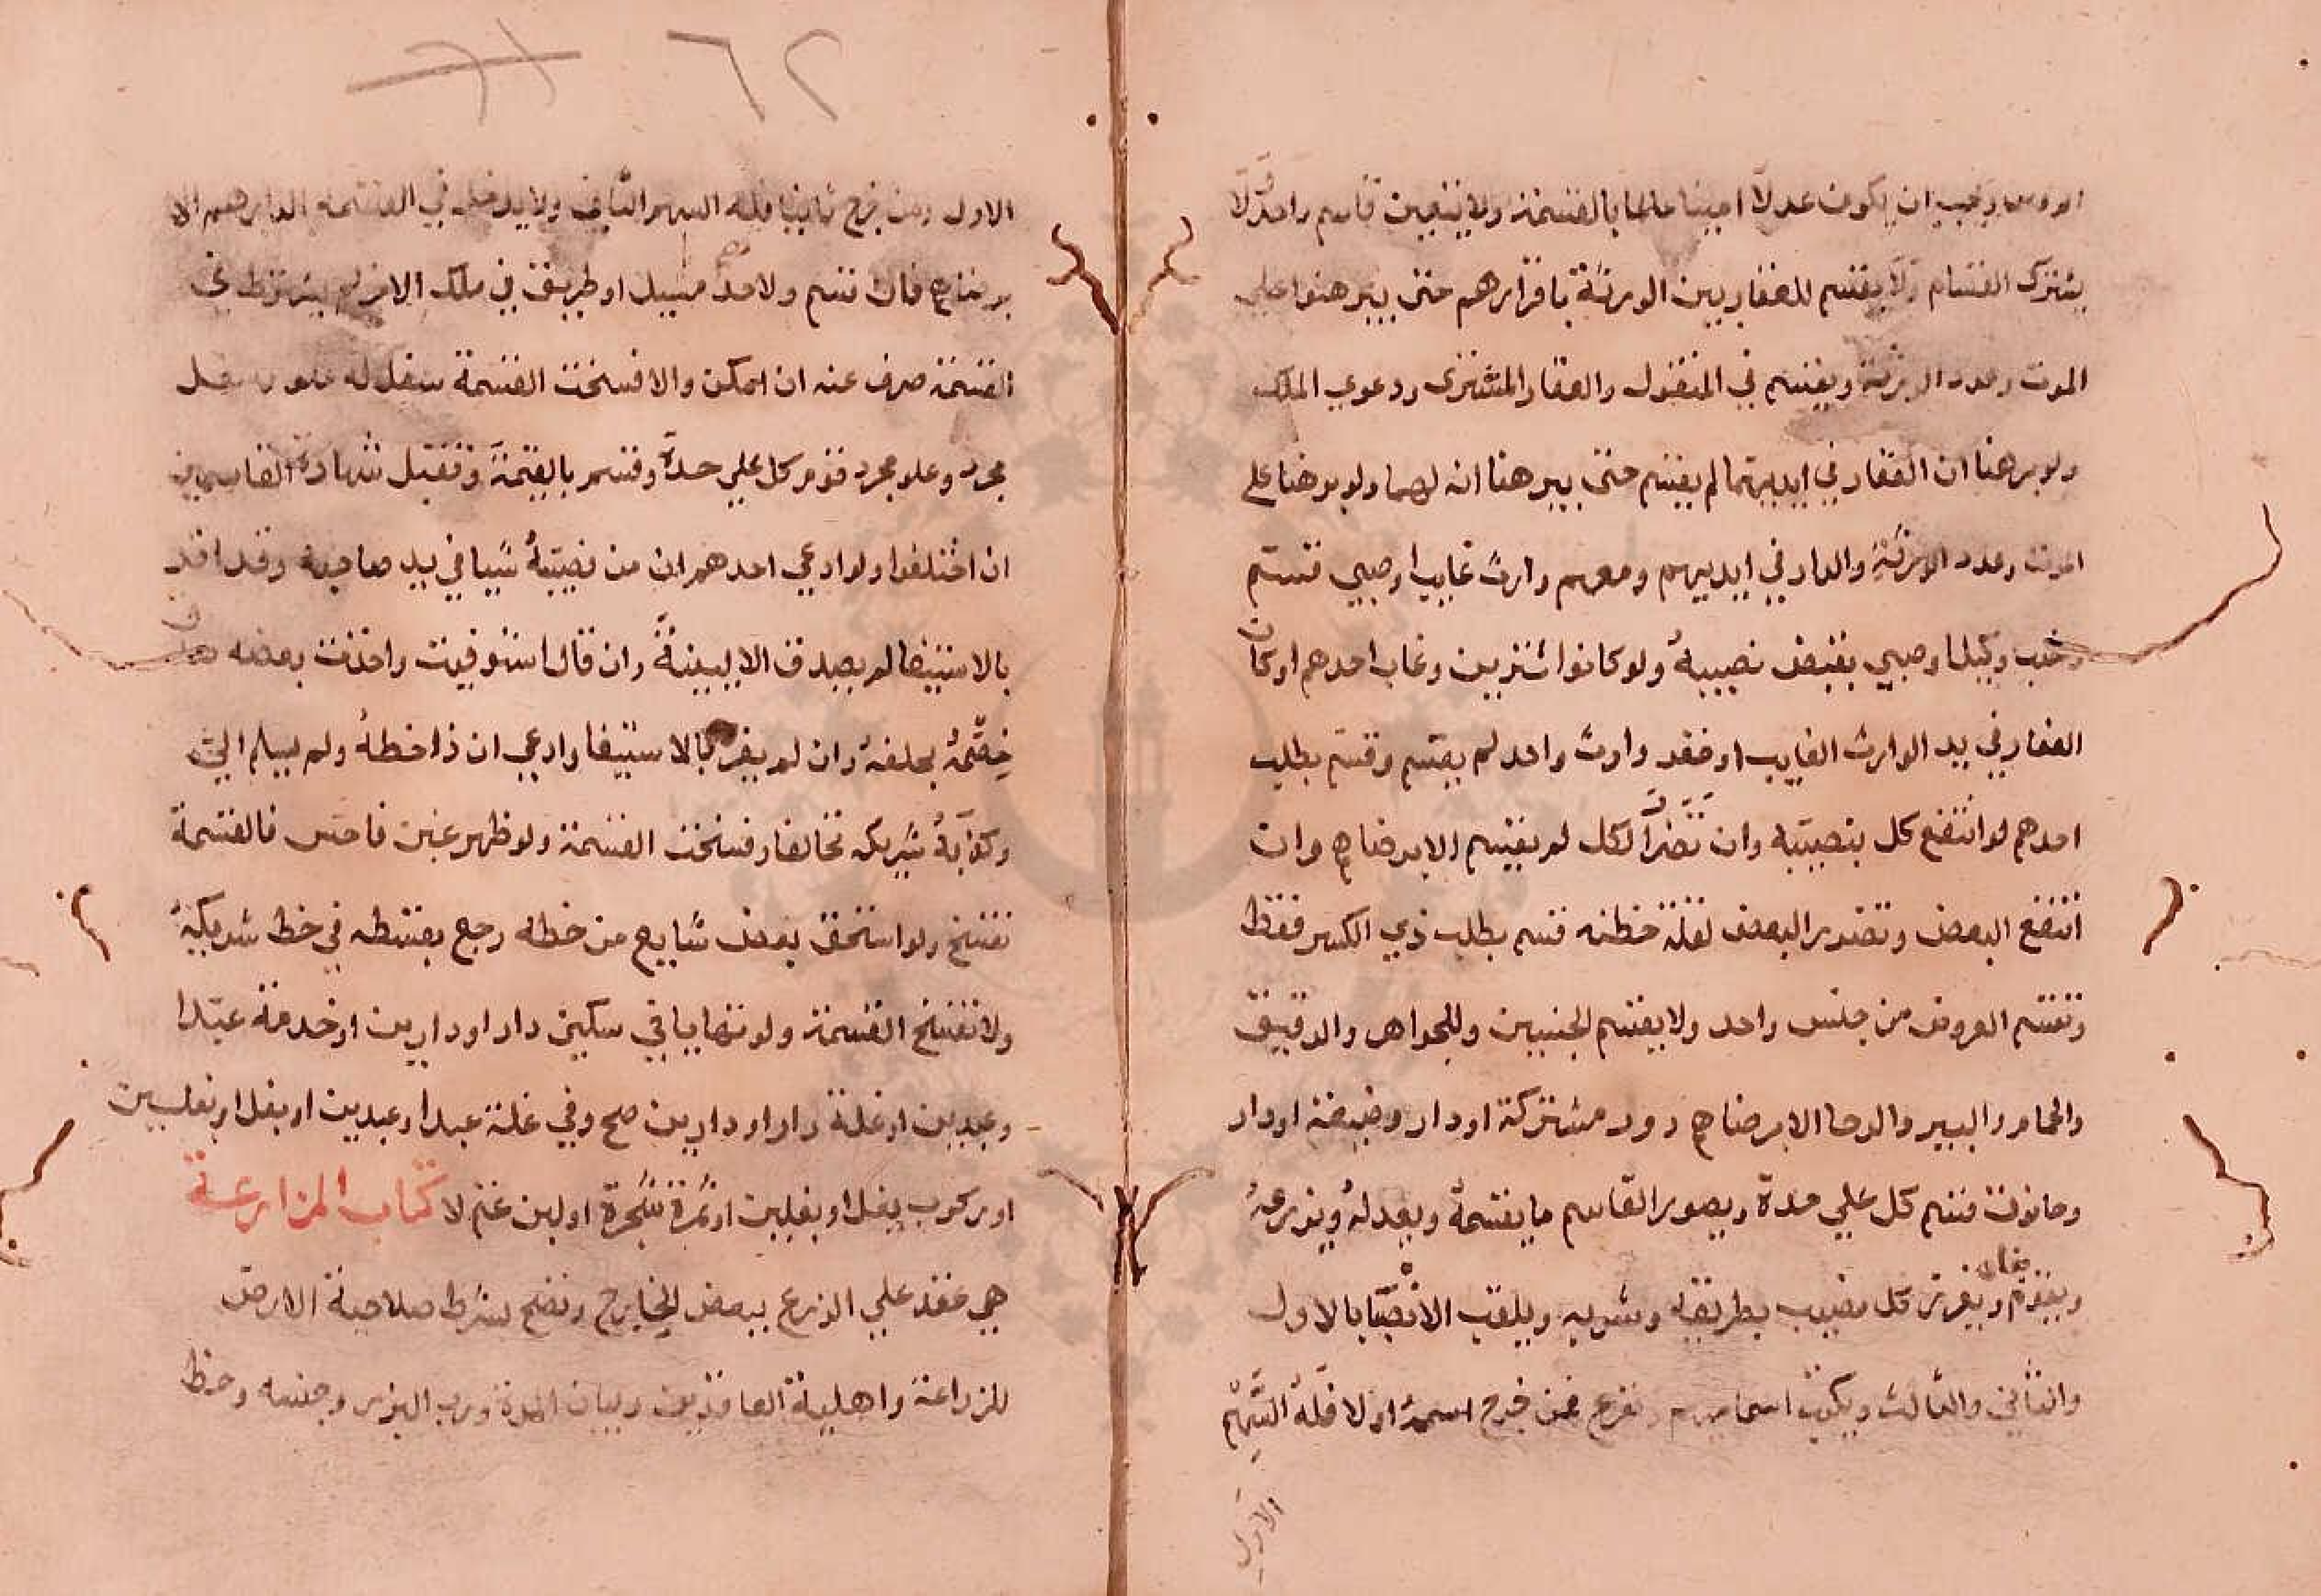 ويجب ان يكون عدلا امينا عالما بالقسمة ولا يتعين قاسم واحد ولا
يشترك القسام ولا يقسم العقار بين الورثة باقرارهم حتى يبرهنوا على
الموت وعدد الورثة ويقسم في المنقول والعقار المشترى ودعوي الملك
ولو برهنا ان العقار في ايديهما لم يقسم حتى يبرهنا انه لهما ولو برهنا على
الموت وعدد الورثة والدار في ايديهم ومعهم وارث غايب او صبي قسم
ونصب وكيل او صبي بقبض نصيبه ولو كانوا مشتريين وغاب احدهم او كان
العقار في يد الوارث الغايب او فقد وارث واحد لم يقسم وقسم بطلب
احدهم لو انتفع كل بنصيبه وان تضر الكل لم يقسم الا برضاهم وان
انتفع البعض وتضرر البعض لقلة حظه قسم بطلب ذي الكسر فقط
وتقسم العروض من جنس واحد ولا يقسم الجنسين والجواهر والرقيق
والحمام والبير والرحا الا برضاهم دور مشتركة او دار وضيعة او دار
وحانوت قسم كل علي حدة ويصور القاسم ما يقسمه ويعدله ويزرعه
ويقوم بناه ويفرز كل نصيب بطريقه وشربه ويلقب الانصبا بالاول
والثاني والثالث ويكتب اساميهم ويقرع فمن خرج اسمه اولا فله السهم
الاول
٦٢
الاول ومن خرج ثانيا فله السهم الثاني ولا يدخل في القسمة الدراهم الا
برضاهم فان قسم ولاحد مسيل او طريق في ملك الاخر لم يشترط في
القسمة صرف عنه ان امكن والا فسخت القسمة سفل له علو وسفل
مجرد وعلو مجرد قوم كل علي حدة وقسم بالقيمة وتقبل شهادة القاسمين
ان اختلفوا ولو ادعي احدهم ان من نصيبه شيا في يد صاحبه وقد اقر
بالاستيفا لم يصدق الا ببينة وان قال استوفيت واخذت بعضه صدق
خصمه بحلفه وان لم يقر بالاستيفا وادعي ان ذا حظه ولم يسلم الي
وكذبه شريكه تحالفا وفسخت القسمة ولو ظهر غبن فاحش فالقسمة
تفسخ ولو استحق بعض شايع من حظه رجع بقسطه في حظ شريكه
ولا تفسخ القسمة ولو تهايا في سكني دار او دارين او خدمة عبدا
وعبدين او غلة دار او دارين صح وفي غلة عبد او عبدين او بغل او بغلين
او ركوب بغل او بغلين او ثمرة شجرة او لبن غنم لا كتاب المزارعة
هي عقد علي الزرع ببعض الخارج وتصح بشرط صلاحية الارض
للزراعة واهلية العاقدين وبيان المدة ورب البذر وجنسه وحظ